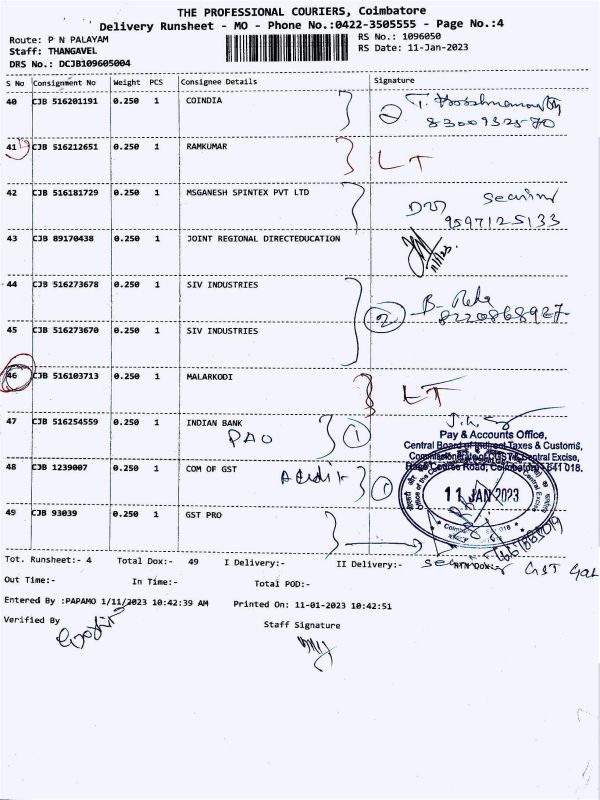 THE PROFESSIONAL COURIERS, Coimbatore
Delivery Runsheet - MO - Phone No.:0422-3505555 - Page No.:4
Route: P N PALAYAM
Staff: THANGAVEL
DRS No.: DCJB109605004
RS No.: 1096050
RS Date: 11-Jan-2023
S No Consignment No Weight PCS Consignee Details Signature
40 CJB 516201191 0.250 1 COINDIA 2
8300932570
41 CJB 516212651 0.250 1 RAMKUMAR LT
42 CJB 516181729 0.250 1 MSGANESH SPINTEX PVT LTD
9597125133
43 CJB 89170438 0.250 1 JOINT REGIONAL DIRECTEDUCATION
44 CJB 516273678 0.250 1 SIV INDUSTRIES
2
8220868927
45 CJB 516273670 0.250 1 SIV INDUSTRIES
46 CJB 516103713 0.250 1 MALARKODI LT
47 CJB 516254559 0.250 1 INDIAN BANK
PAO 1
Pay & Accounts Office,
Central Board of Indirect Taxes & Customs,
Commissionerate of GST & Central Excise,
Race Course Road, Coimbatore-641 018.
48 CJB 1239007 0.250 1 COM OF GST Audit 1
11 JAN 2023
49 CJB 93039 0.250 1 GST PRO
Tot. Runsheet:- 4 Total Dox:- 49 I Delivery:- II Delivery:- RTN Dox:-
Out Time:- In Time:- Total POD:-
Entered By :PAPAMO 1/11/2023 10:42:39 AM Printed On: 11-01-2023 10:42:51
Verified By
Staff Signature